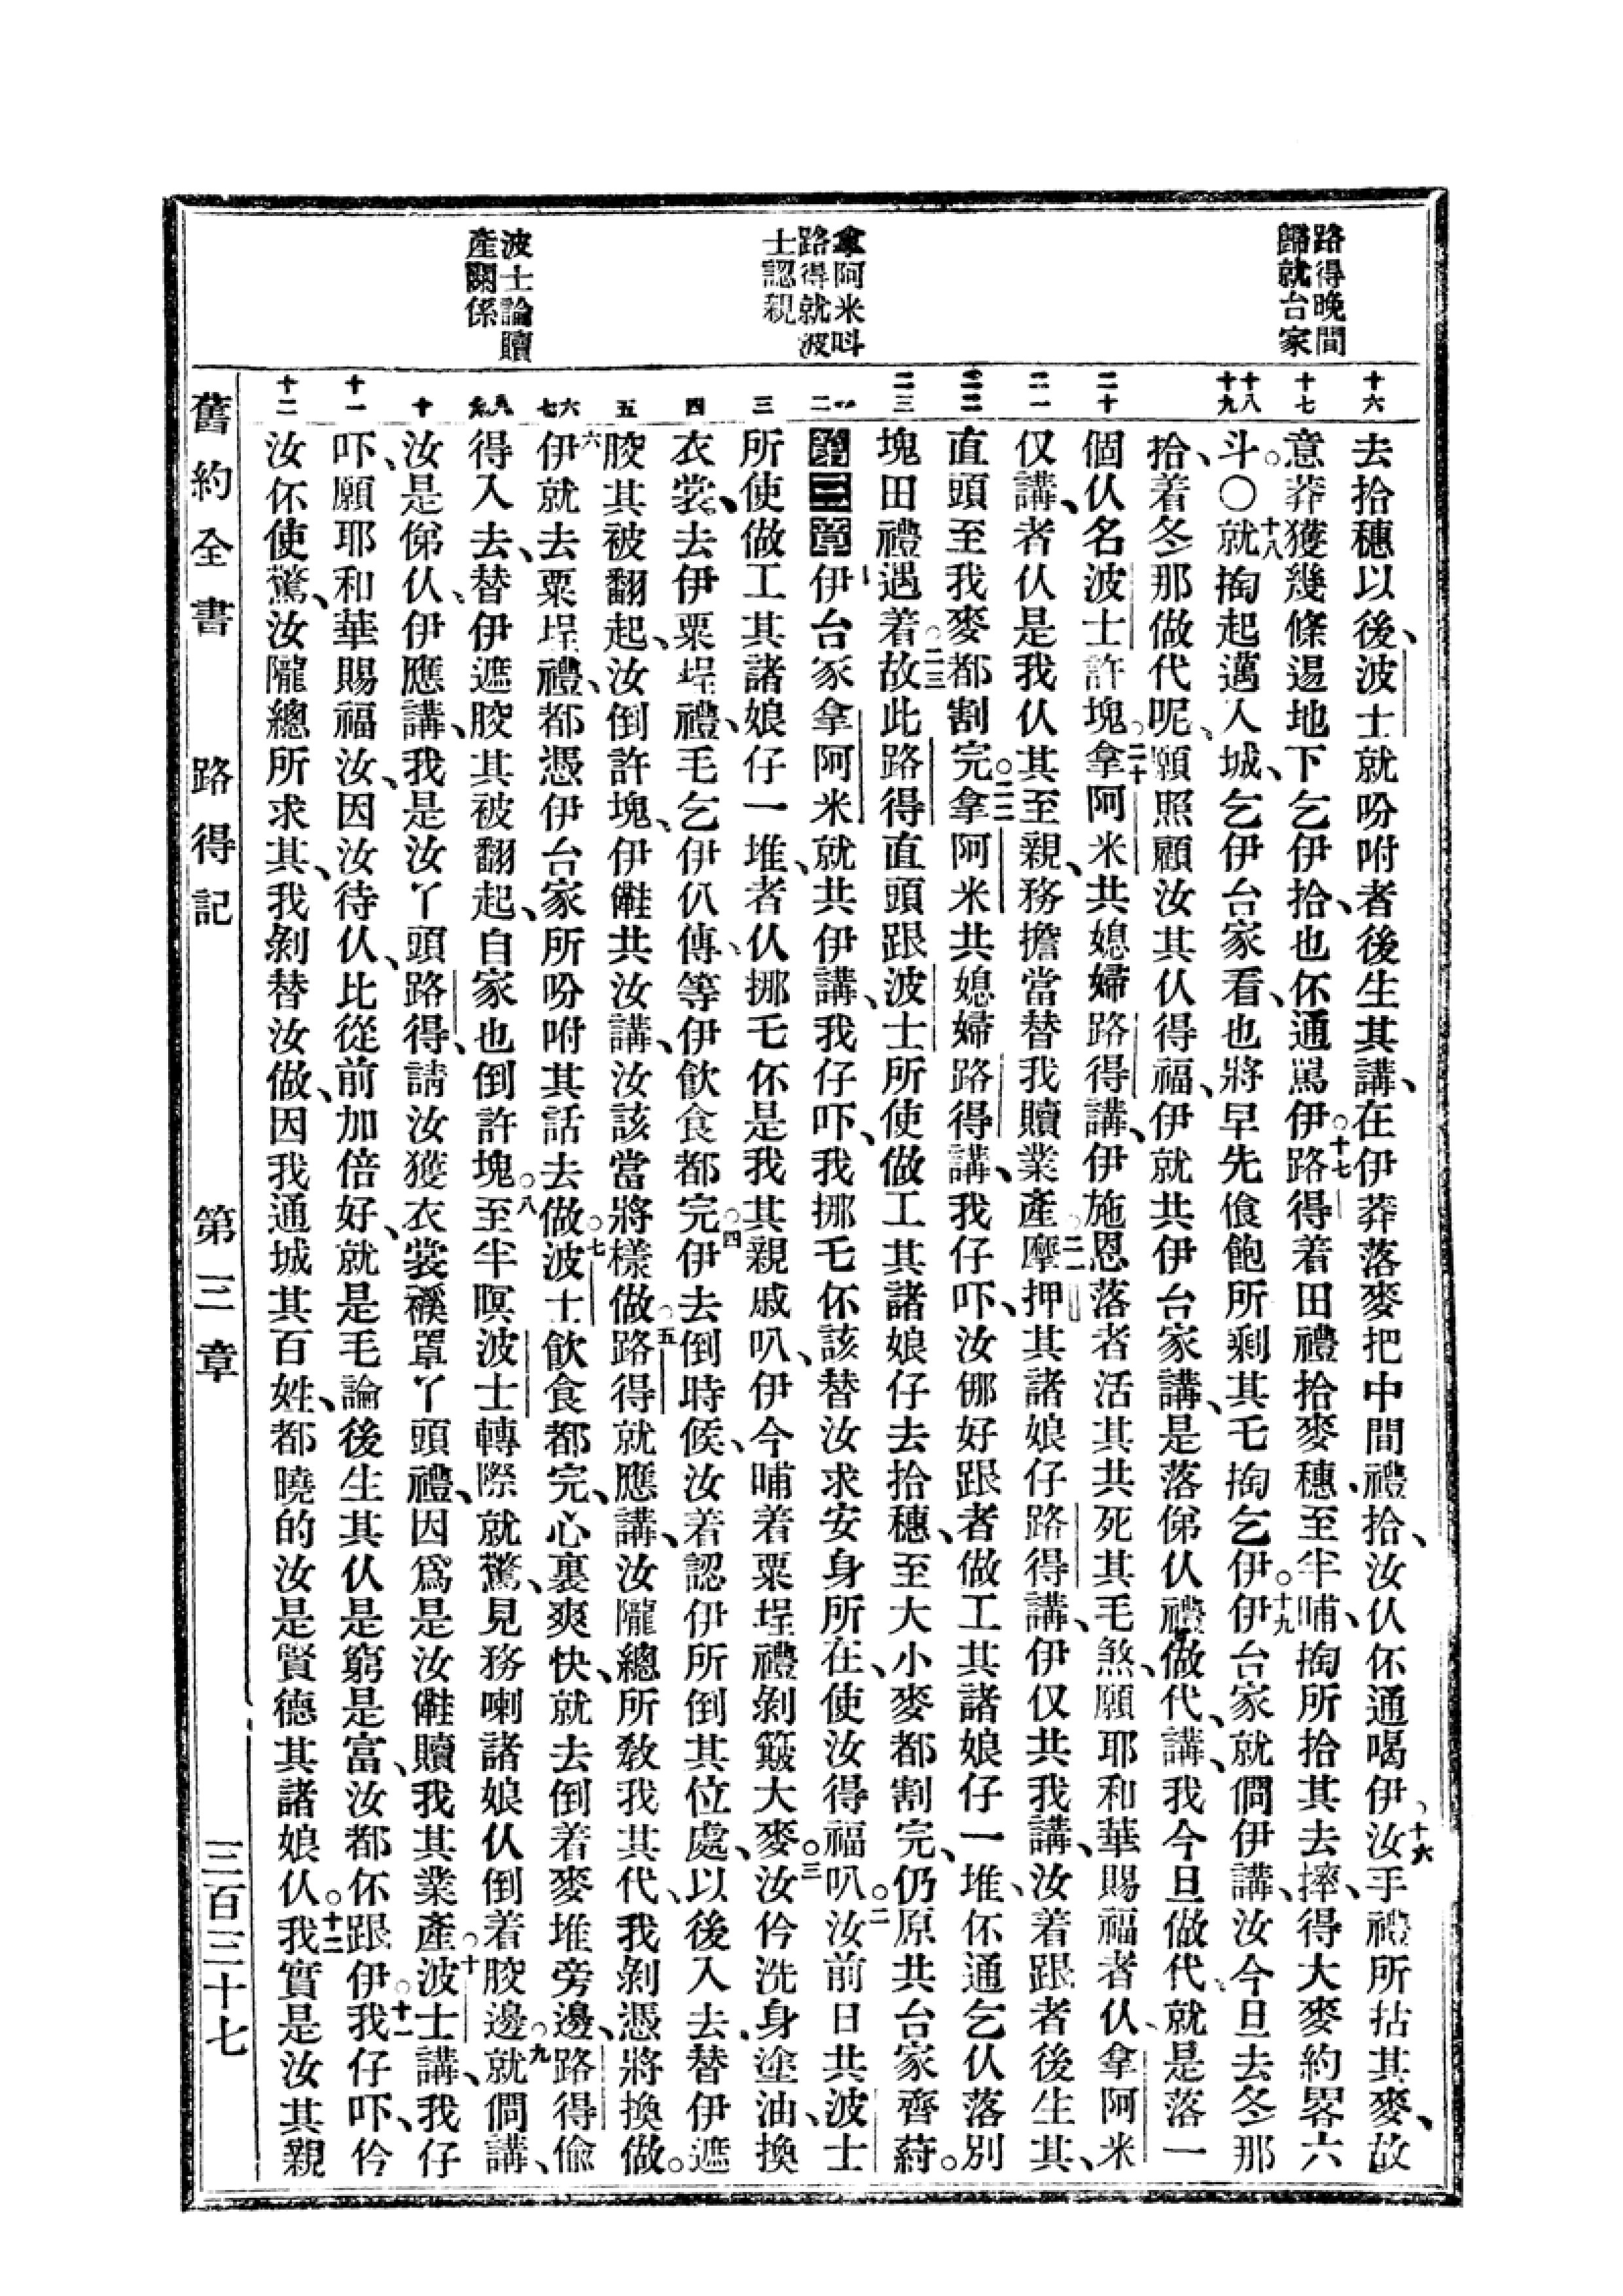 路得晚間
歸就台家
拿阿米呌
路得就波
士認親
波士論贖
產關係
十六
十七
十八
十九
二十
二一
二二
二三
一
二
三
四
五
六
七
八
九
十
十一
十二
去拾穗以後、波士就吩咐者後生其講、在伊莽落麥把中間禮拾、汝仈伓通喝伊、十六汝手禮所拈其麥、故
意莽獲幾條逿地下乞伊拾、也伓通駡伊。十七路得着田禮拾麥穗、至半晡、掏所拾其去擇、得大麥約畧六
斗。○十八就掏起邁入城、乞伊台家看、也將早先食飽所剩其乇掏乞伊。十九伊台家就僩伊講、汝今旦去冬那
拾、着冬那做代呢、願照顧汝其仈得福、伊就共伊台家講、是落俤仈禮做代、講、我今旦做代、就是落一
個仈名波士許塊。二十拿阿米共媳婦路得講、伊施恩落者活其共死其毛煞、願耶和華賜福者仈、拿阿米
仅講、者仈是我仈其至親、務擔當替我贖業產。二一摩押其諸娘仔路得講、伊仅共我講、汝着跟者後生其、
直頭至我麥都割完。二二拿阿米共媳婦路得講、我仔吓、汝㑚好跟者做工其諸娘仔一堆、伓通乞仈落別
塊田禮遇着。二三故此路得直頭跟波士所使做工其諸娘仔去拾穗、至大小麥都割完、仍原共台家齊蒔。
第三章一伊台家拿阿米就共伊講、我仔吓、我挪乇伓該替汝求安身所在、使汝得福叭。二汝前日共波士
所使做工其諸娘仔一堆、者仈挪乇伓是我其親戚叭、伊今晡着粟埕禮剝簸大麥。三汝仱洗身塗油、換
衣裳、去伊粟埕禮、毛乞伊仈傳、等伊飲食都完。四伊去倒時候、汝着認伊所倒其位處、以後入去、替伊遮
骹其被翻起、汝倒許塊、伊𠆧共汝講、汝該當將樣做。五路得就應講、汝隴總所教我其代、我剝憑將換做。
六伊就去粟埕禮、都憑伊台家所吩咐其話去做。七波士飲食都完、心裏爽快、就去倒着麥堆旁邊、路得偷
得入去、替伊遮骹其被翻起、自家也倒許塊。八至半暝波士轉際就驚、見務喇諸娘仈倒着骹邊。九就僩講、
汝是俤仈、伊應講、我是汝丫頭路得、請汝獲衣裳襆罩丫頭禮、因爲是汝𠆧贖我其業產。十波士講、我仔
吓、願耶和華賜福汝、因汝待仈、比從前加倍好、就是毛論後生其仈是窮是富、汝都伓跟伊。十一我仔吓、仱
汝伓使驚、汝隴總所求其、我剝替汝做、因我通城其百姓、都曉的汝是賢德其諸娘仈。十二我實是汝其親
舊約全書
路得記
第三章
三百三十七